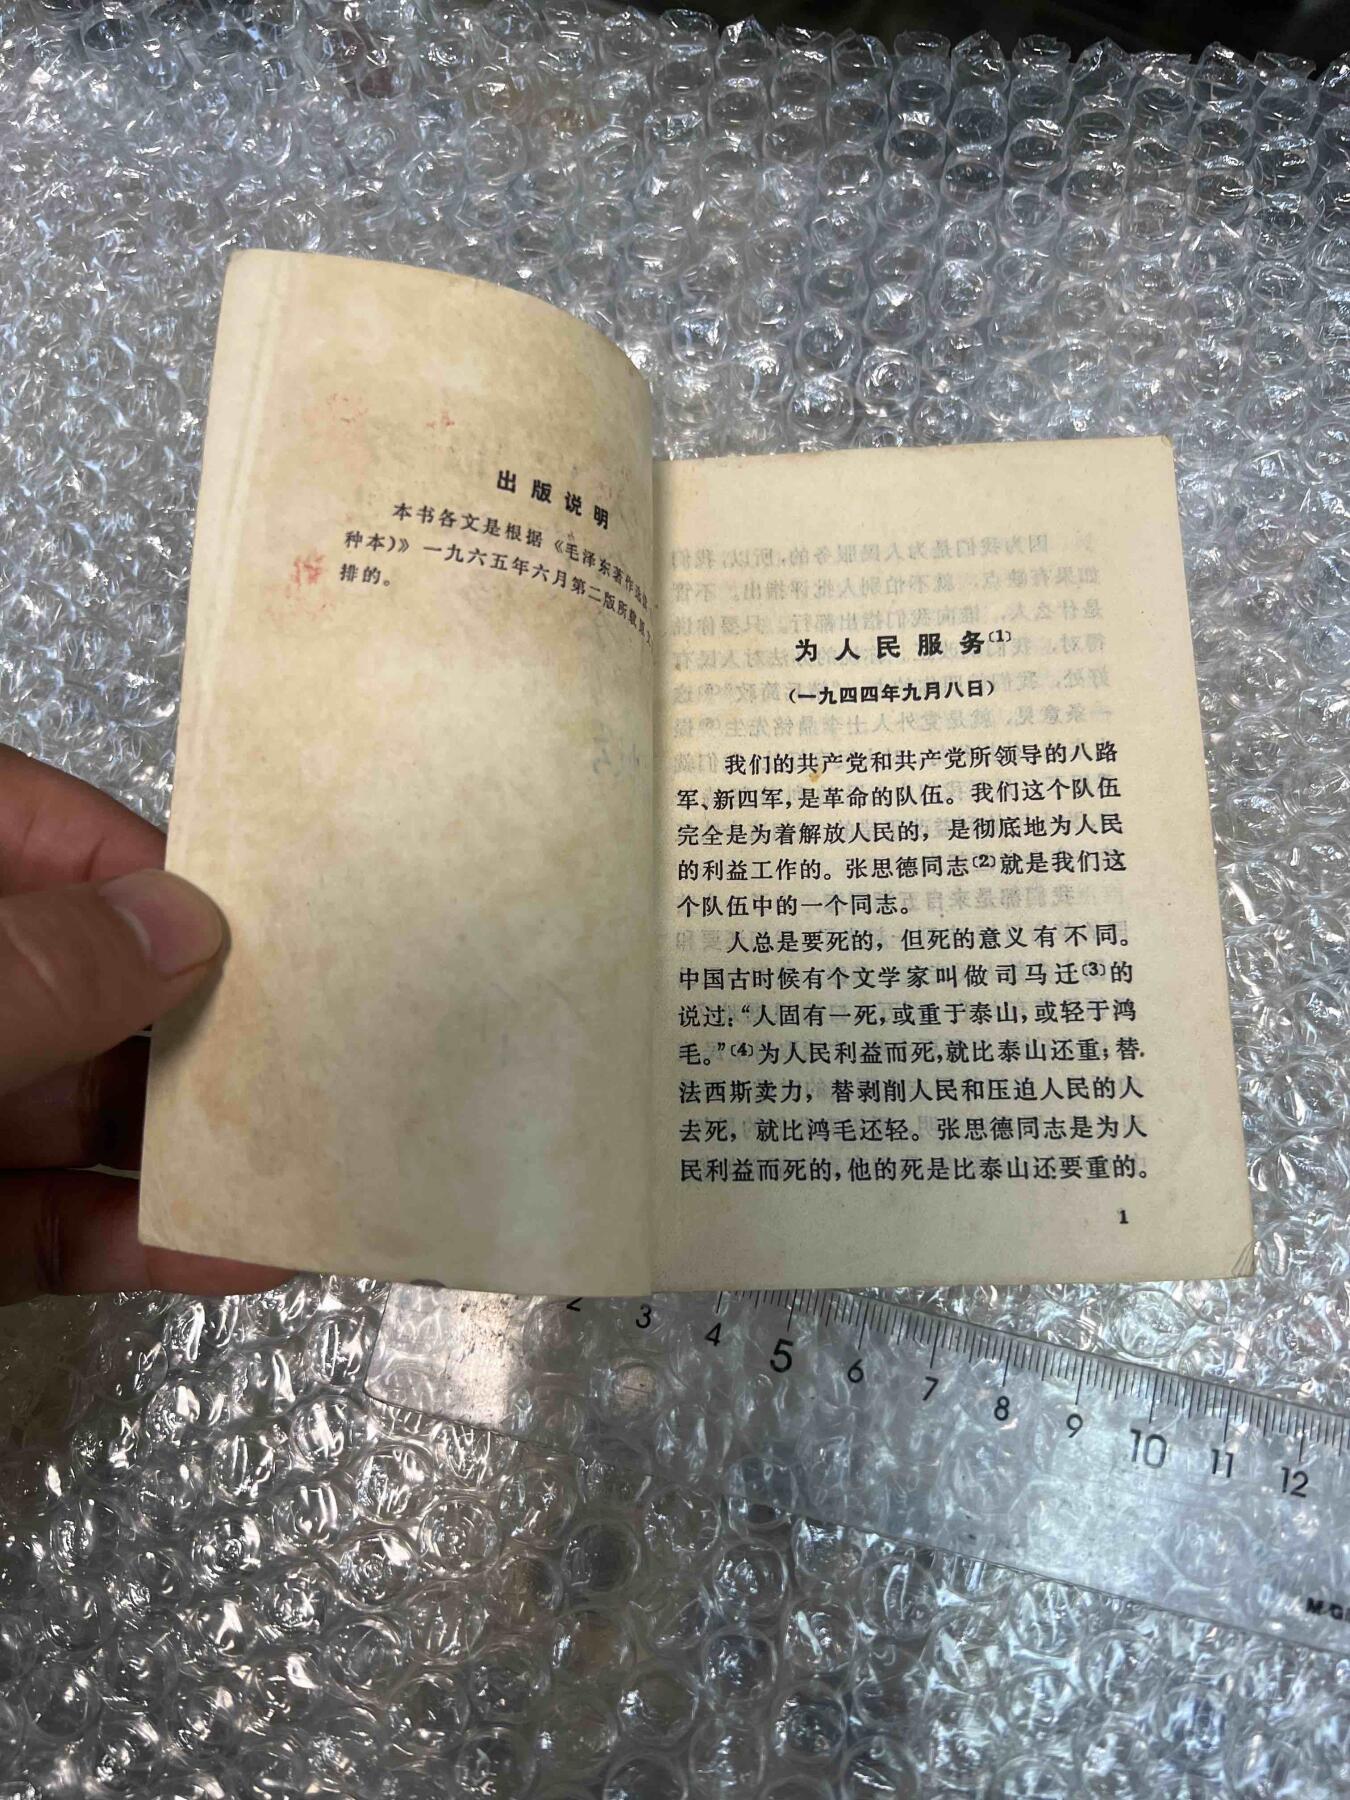 出版说明
本书各文是根据《毛泽东著作选读
种本)》一九六五年六月第二版所载原文
排的。
为人民服务〔1〕
(一九四四年九月八日)
我们的共产党和共产党所领导的八路
军、新四军,是革命的队伍。我们这个队伍
完全是为着解放人民的,是彻底地为人民
的利益工作的。张思德同志〔2〕就是我们这
个队伍中的一个同志。
人总是要死的,但死的意义有不同。
中国古时候有个文学家叫做司马迁〔3〕的
说过:“人固有一死,或重于泰山,或轻于鸿
毛。”〔4〕为人民利益而死,就比泰山还重;替
法西斯卖力,替剥削人民和压迫人民的人
去死,就比鸿毛还轻。张思德同志是为人
民利益而死的,他的死是比泰山还要重的。
1
2 3 4 5 6 7 8 9 10 11 12